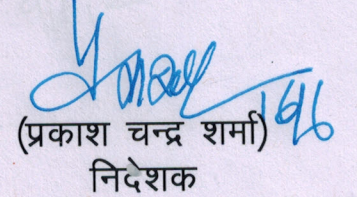 (प्रकाश चन्द्र शर्मा)
निदेशक